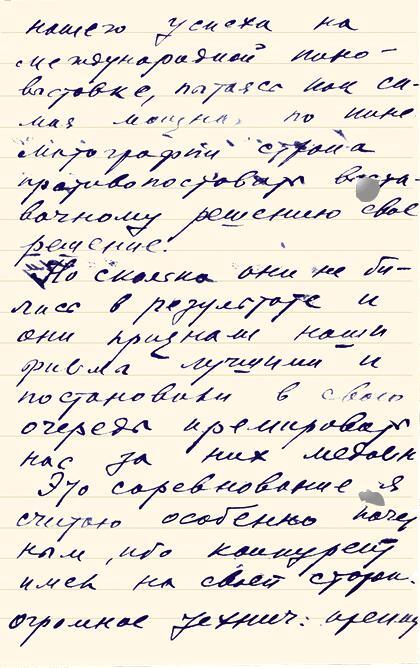 нашего успеха на
международной кино-
выставке, пытаясь как са-
мая мощная по кине
матографии страна
противопоставить выста-
вочному решению свое
решение.
Но сколько они не би-
лись в результате и
они признали наши
фильма лучшими и
постановили в свою
очередь премировать
нас за них медаля
Это соревнование я
считаю особенно поче
ным, ибо конкурент
имел на своей сторон.
огромное технич: преиму